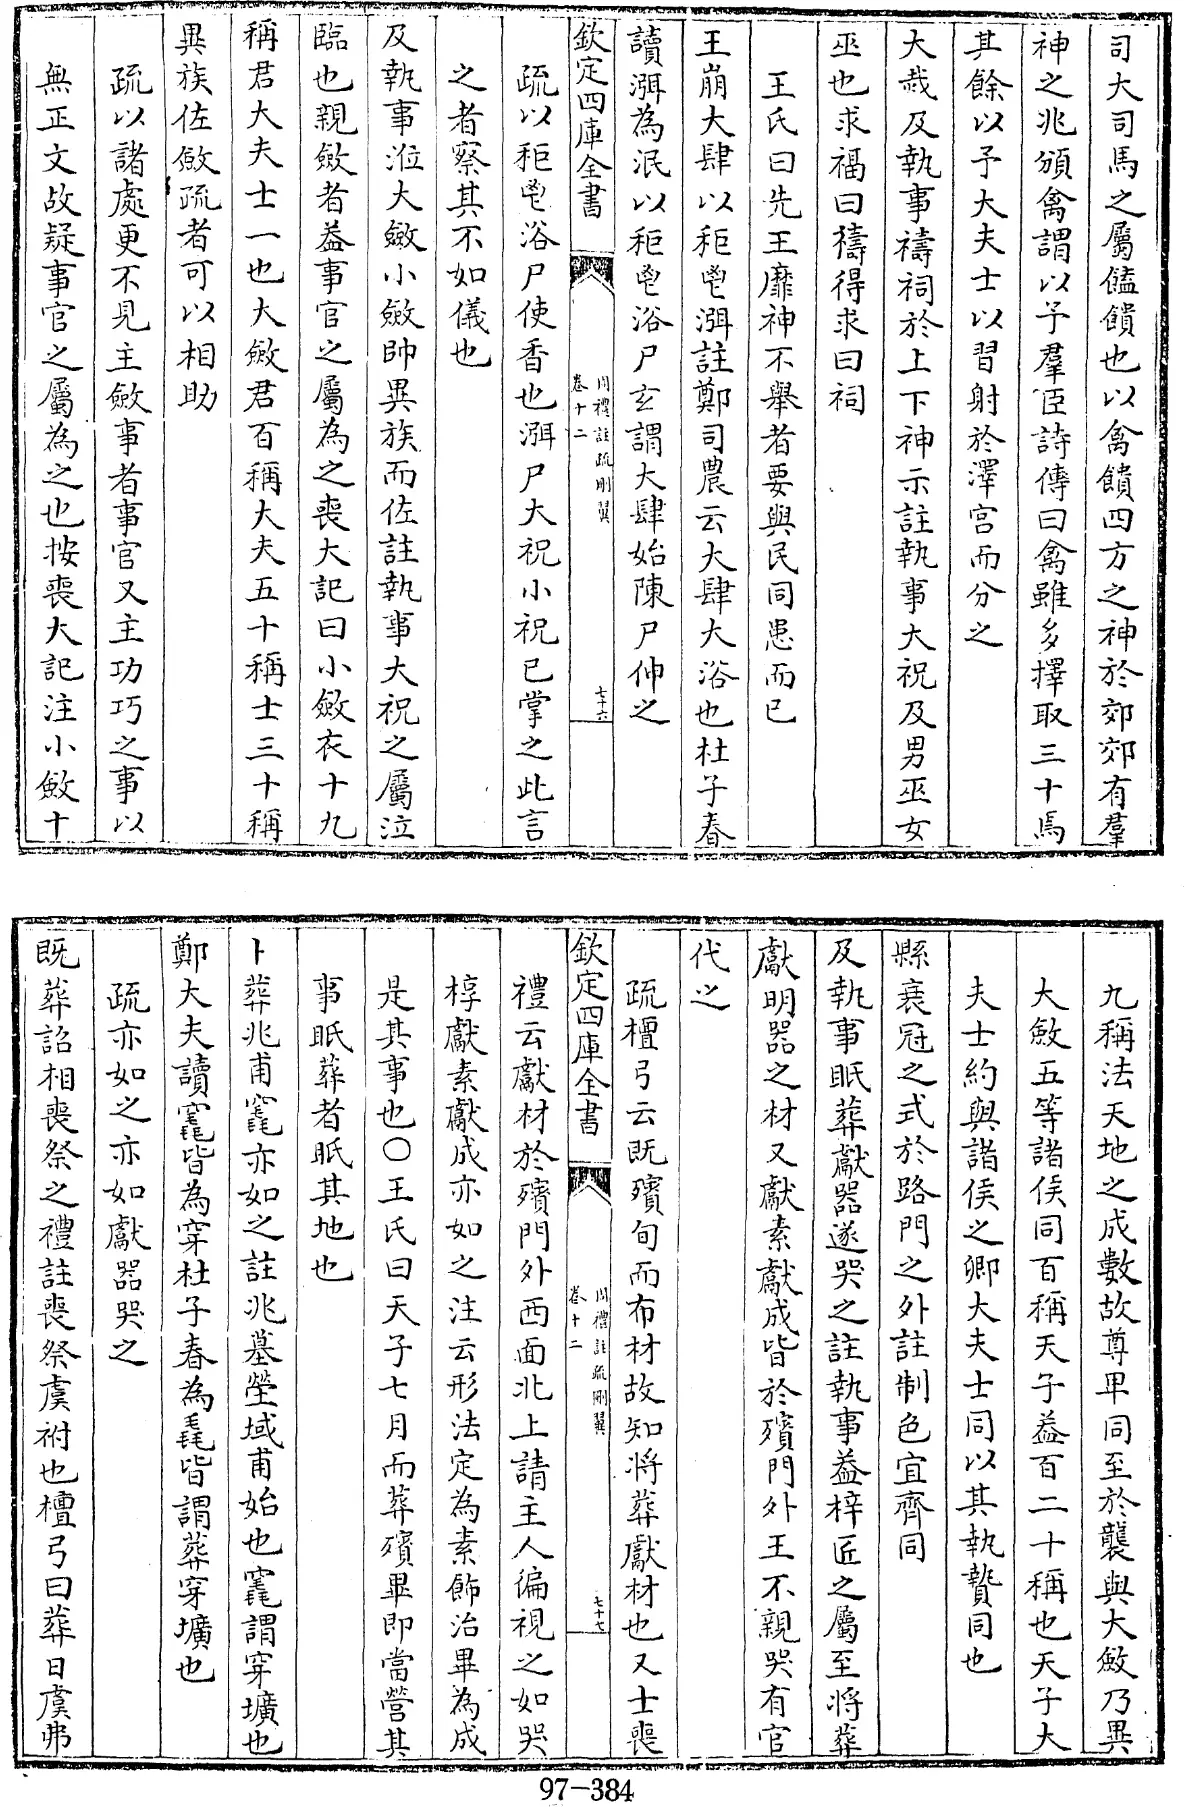 司大司馬之屬饁饋也以禽饋四方之神於郊郊有羣
神之兆頒禽謂以予羣臣詩傳曰禽雖多擇取三十焉
其餘以予大夫士以習射於澤宫而分之
大烖及執事禱祠於上下神示註執事大祝及男巫女
巫也求福曰禱得求曰祠
王氏曰先王靡神不舉者要與民同患而已
王崩大肆以秬鬯渳註鄭司農云大肆大浴也杜子春
讀渳為泯以秬鬯浴尸玄謂大肆始陳尸伸之
欽定四庫全書
周禮註疏刪翼
卷十二
七十六
疏以秬鬯浴尸使香也渳尸大祝小祝已掌之此言
之者察其不如儀也
及執事涖大斂小斂帥異族而佐註執事大祝之屬涖
臨也親斂者蓋事官之屬為之喪大記曰小斂衣十九
稱君大夫士一也大斂君百稱大夫五十稱士三十稱
異族佐斂疏者可以相助
疏以諸處更不見主斂事者事官又主功巧之事以
無正文故疑事官之屬為之也按喪大記注小斂十
九稱法天地之成數故尊卑同至於襲與大斂乃異
大斂五等諸侯同百稱天子蓋百二十稱也天子大
夫士約與諸侯之卿大夫士同以其執贄同也
縣衰冠之式於路門之外註制色宜齊同
及執事眡葬獻器遂哭之註執事蓋梓匠之屬至將葬
獻明器之材又獻素獻成皆於殯門外王不親哭有官
代之
疏檀弓云既殯旬而布材故知將葬獻材也又士喪
欽定四庫全書
周禮註疏刪翼
卷十二
七十七
禮云獻材於殯門外西面北上請主人徧視之如哭
椁獻素獻成亦如之注云形法定為素飾治畢為成
是其事也○王氏曰天子七月而葬殯畢即當營其
事眡葬者眡其地也
卜葬兆甫竁亦如之註兆墓塋域甫始也竁謂穿壙也
鄭大夫讀竁皆為穿杜子春為毳皆謂葬穿壙也
疏亦如之亦如獻器哭之
既葬詔相喪祭之禮註喪祭虞祔也檀弓曰葬日虞弗
97-384